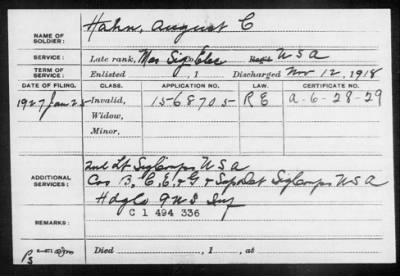 NAME OF SOLDIER: Hahn, August C
SERVICE: Late rank, Mas Sig Elec Reg't U S A
TERM OF SERVICE: Enlisted , 1 Discharged Nov 12, 1918
DATE OF FILING. CLASS. APPLICATION NO. LAW. CERTIFICATE NO.
1927 Jan 25 Invalid, 1568705 R E A-6-28-29
Widow,
Minor,
2nd Lt Sig Corps U S A
ADDITIONAL SERVICES: Cos B, C, E, & G & Sup Det Sig Corps U S A
Hdq Co 9 U S Inf
C 1 494 336
REMARKS:
Died , 1 , at